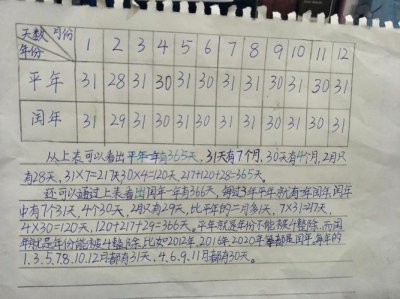 天数 月份
年份 1 2 3 4 5 6 7 8 9 10 11 12
平年 31 28 31 30 31 30 31 31 30 31 30 31
闰年 31 29 31 30 31 30 31 31 30 31 30 31
从上表可以看出平年一年有365天,31天有7个月,30天有4个月,2月只
有28天,31×7=217天30×4=120天,217+120+28=365天。
还可以通过上表看出闰年一年有366天,每过3年平年就有一年闰年,闰年
中有7个31天,4个30天,2月只有29天,比平年的二月多1天,7×31=217天,
4×30=120天,120+217+29=366天。平年就是年份不能被4整除,而闰
年就是年份能被4整除,比如2012年,2016年,2020年等都是闰年,每年的
1.3.5.7.8.10.12月都有31天,4.6.9.11月都有30天。